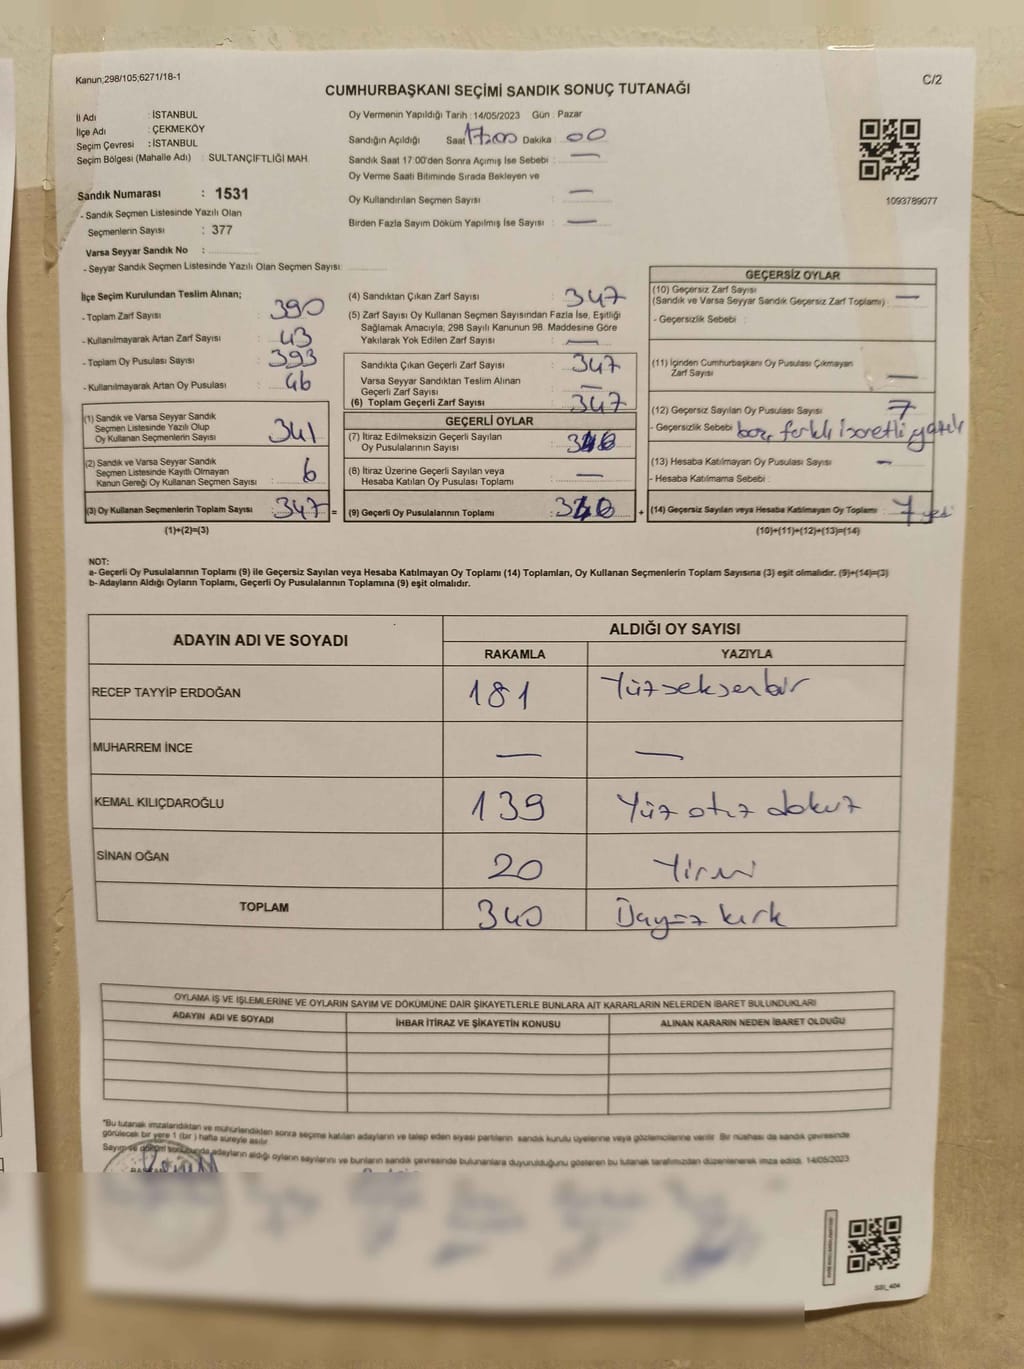 Kanun;298/105;6271/18-1
C/2
CUMHURBAŞKANI SEÇİMİ SANDIK SONUÇ TUTANAĞI
İl Adı : İSTANBUL
İlçe Adı : ÇEKMEKÖY
Seçim Çevresi : İSTANBUL
Seçim Bölgesi (Mahalle Adı) : SULTANÇİFTLİĞİ MAH.
Sandık Numarası : 1531
- Sandık Seçmen Listesinde Yazılı Olan
Seçmenlerin Sayısı : 377
Varsa Seyyar Sandık No :
- Seyyar Sandık Seçmen Listesinde Yazılı Olan Seçmen Sayısı:
Oy Vermenin Yapıldığı Tarih : 14/05/2023 Gün : Pazar
Sandığın Açıldığı Saat 17:00 Dakika : 00
Sandık Saat 17:00'den Sonra Açımış İse Sebebi : —
Oy Verme Saati Bitiminde Sırada Bekleyen ve
Oy Kullandırılan Seçmen Sayısı : —
Birden Fazla Sayım Döküm Yapılmış İse Sayısı : —
1093789077
İlçe Seçim Kurulundan Teslim Alınan;
- Toplam Zarf Sayısı : 390
- Kullanılmayarak Artan Zarf Sayısı : 43
- Toplam Oy Pusulası Sayısı : 393
- Kullanılmayarak Artan Oy Pusulası : 46
(1) Sandık ve Varsa Seyyar Sandık
Seçmen Listesinde Yazılı Olup
Oy Kullanan Seçmenlerin Sayısı : 341
(2) Sandık ve Varsa Seyyar Sandık
Seçmen Listesinde Kayıtlı Olmayan
Kanun Gereği Oy Kullanan Seçmen Sayısı : 6
(3) Oy Kullanan Seçmenlerin Toplam Sayısı : 347 =
(1)+(2)=(3)
(4) Sandıktan Çıkan Zarf Sayısı : 347
(5) Zarf Sayısı Oy Kullanan Seçmen Sayısından Fazla İse, Eşitliği
Sağlamak Amacıyla; 298 Sayılı Kanunun 98. Maddesine Göre
Yakılarak Yok Edilen Zarf Sayısı : —
Sandıkta Çıkan Geçerli Zarf Sayısı : 347
Varsa Seyyar Sandıktan Teslim Alınan
Geçerli Zarf Sayısı : —
(6) Toplam Geçerli Zarf Sayısı : 347
GEÇERLİ OYLAR
(7) İtiraz Edilmeksizin Geçerli Sayılan
Oy Pusulalarının Sayısı :
(8) İtiraz Üzerine Geçerli Sayılan veya
Hesaba Katılan Oy Pusulası Toplamı : —
(9) Geçerli Oy Pusulalarının Toplamı : +
GEÇERSİZ OYLAR
(10) Geçersiz Zarf Sayısı
(Sandık ve Varsa Seyyar Sandık Geçersiz Zarf Toplamı) : —
- Geçersizlik Sebebi :
(11) İçinden Cumhurbaşkanı Oy Pusulası Çıkmayan
Zarf Sayısı : —
(12) Geçersiz Sayılan Oy Pusulası Sayısı : 7
- Geçersizlik Sebebi : boş, farklı işaretli,
(13) Hesaba Katılmayan Oy Pusulası Sayısı : —
- Hesaba Katılmama Sebebi :
(14) Geçersiz Sayılan veya Hesaba Katılmayan Oy Toplamı : 7 yedi
(10)+(11)+(12)+(13)=(14)
NOT:
a- Geçerli Oy Pusulalarının Toplamı (9) ile Geçersiz Sayılan veya Hesaba Katılmayan Oy Toplamı (14) Toplamları, Oy Kullanan Seçmenlerin Toplam Sayısına (3) eşit olmalıdır. (9)+(14)=(3)
b- Adayların Aldığı Oyların Toplamı, Geçerli Oy Pusulalarının Toplamına (9) eşit olmalıdır.
ADAYIN ADI VE SOYADI
ALDIĞI OY SAYISI
RAKAMLA YAZIYLA
RECEP TAYYİP ERDOĞAN 181 Yüzseksenbir
MUHARREM İNCE — —
KEMAL KILIÇDAROĞLU 139 Yüz otuz dokuz
SİNAN OĞAN 20 Yirmi
TOPLAM 340 Üçyüz kırk
OYLAMA İŞ VE İŞLEMLERİNE VE OYLARIN SAYIM VE DÖKÜMÜNE DAİR ŞİKAYETLERLE BUNLARA AİT KARARLARIN NELERDEN İBARET BULUNDUKLARI
ADAYIN ADI VE SOYADI İHBAR İTİRAZ VE ŞİKAYETİN KONUSU ALINAN KARARIN NEDEN İBARET OLDUĞU
*Bu tutanak imzalandıktan ve mühürlendikten sonra seçime katılan adayların ve talep eden siyasi partilerin sandık kurulu üyelerine veya gözlemcilerine verilir. Bir nüshası da sandık çevresinde
görülecek bir yere 1 (bir ) hafta süreyle asılır.
Sayım ve döküm sonucunda adayların aldığı oyların sayılarını ve bunların sandık çevresinde bulunanlara duyurulduğunu gösteren bu tutanak tarafımızdan düzenlenerek imza edildi. 14/05/2023